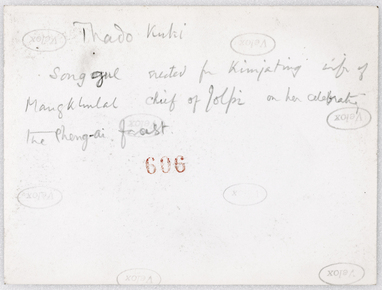 Thado Kuki
Song gul erected for Kimjating wife of
Mangkhulal chief of Jolpi on her celebrating
the Phong-ai feast.
606
Velox
Velox
Velox
Velox
Velox
Velox